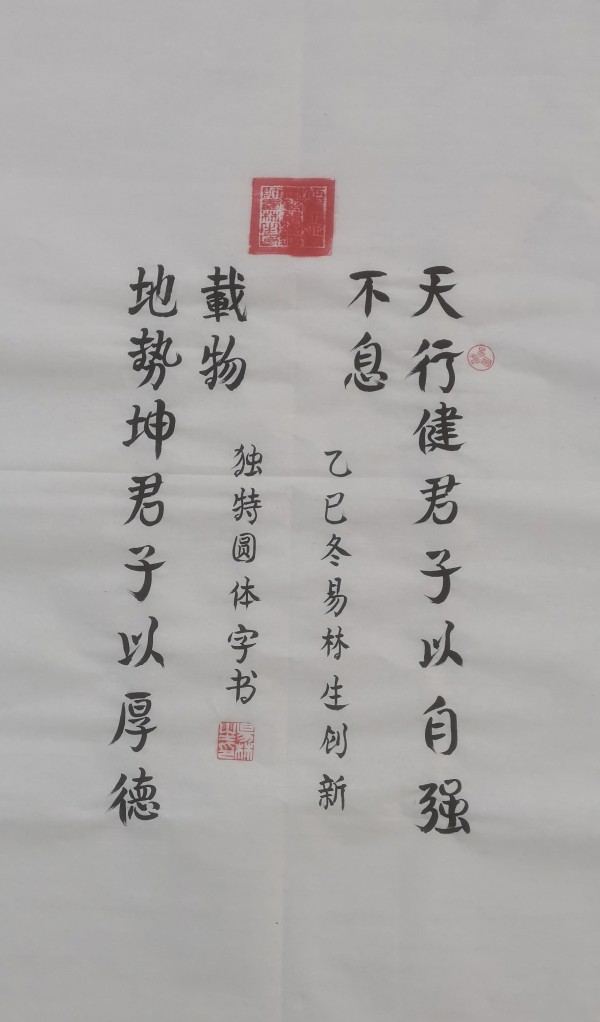 天行健君子以自强
不息
乙巳冬易林生创新
地势坤君子以厚德
載物
独特圆体字书